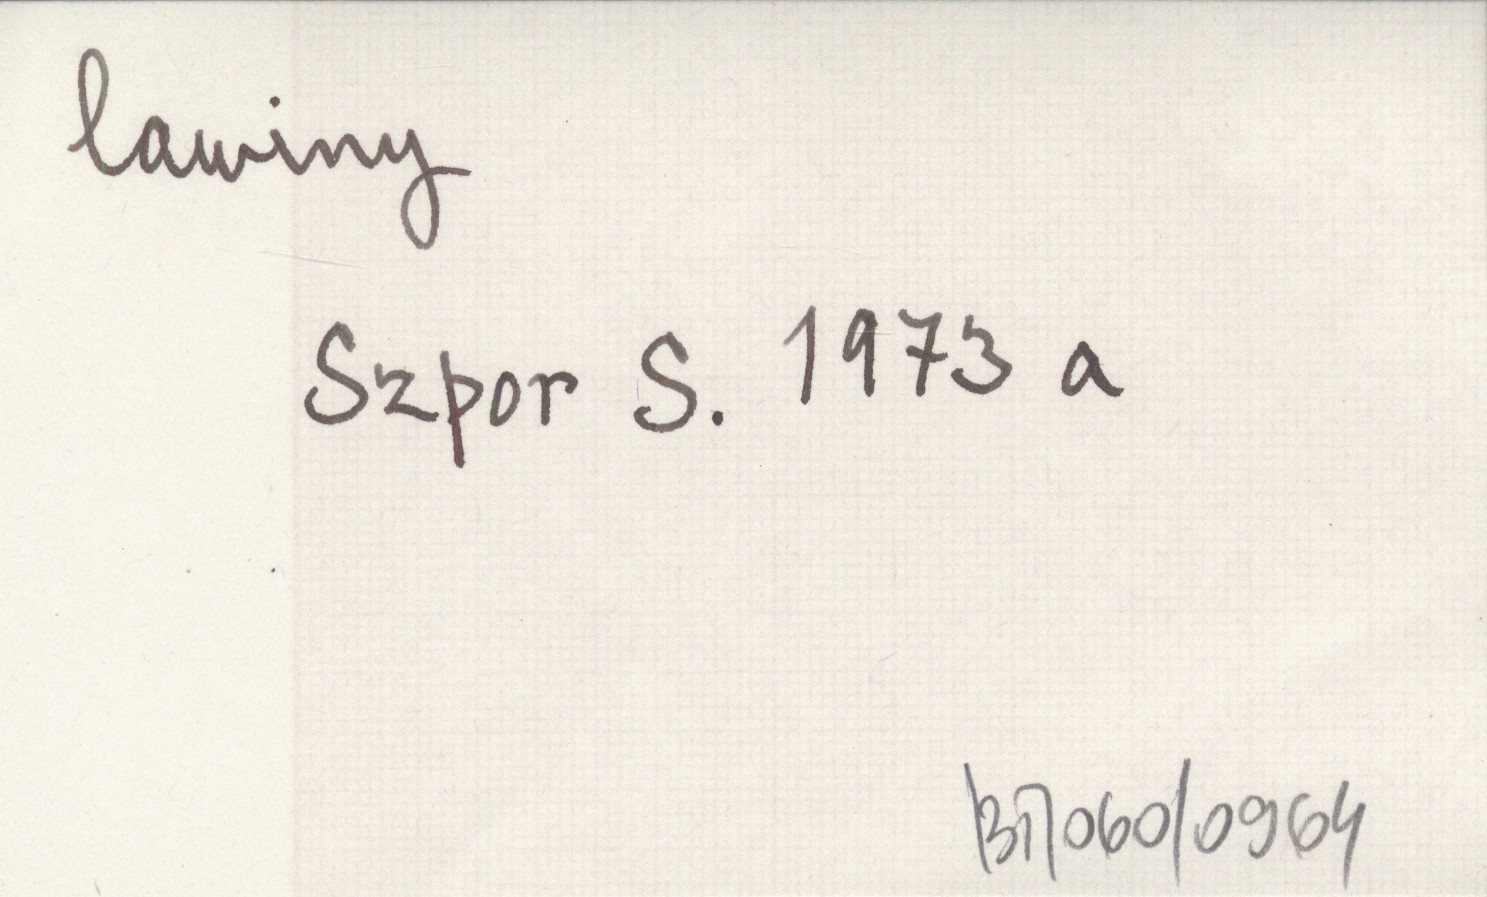 lawiny
Szpor S. 1973 a
BT/060/0964